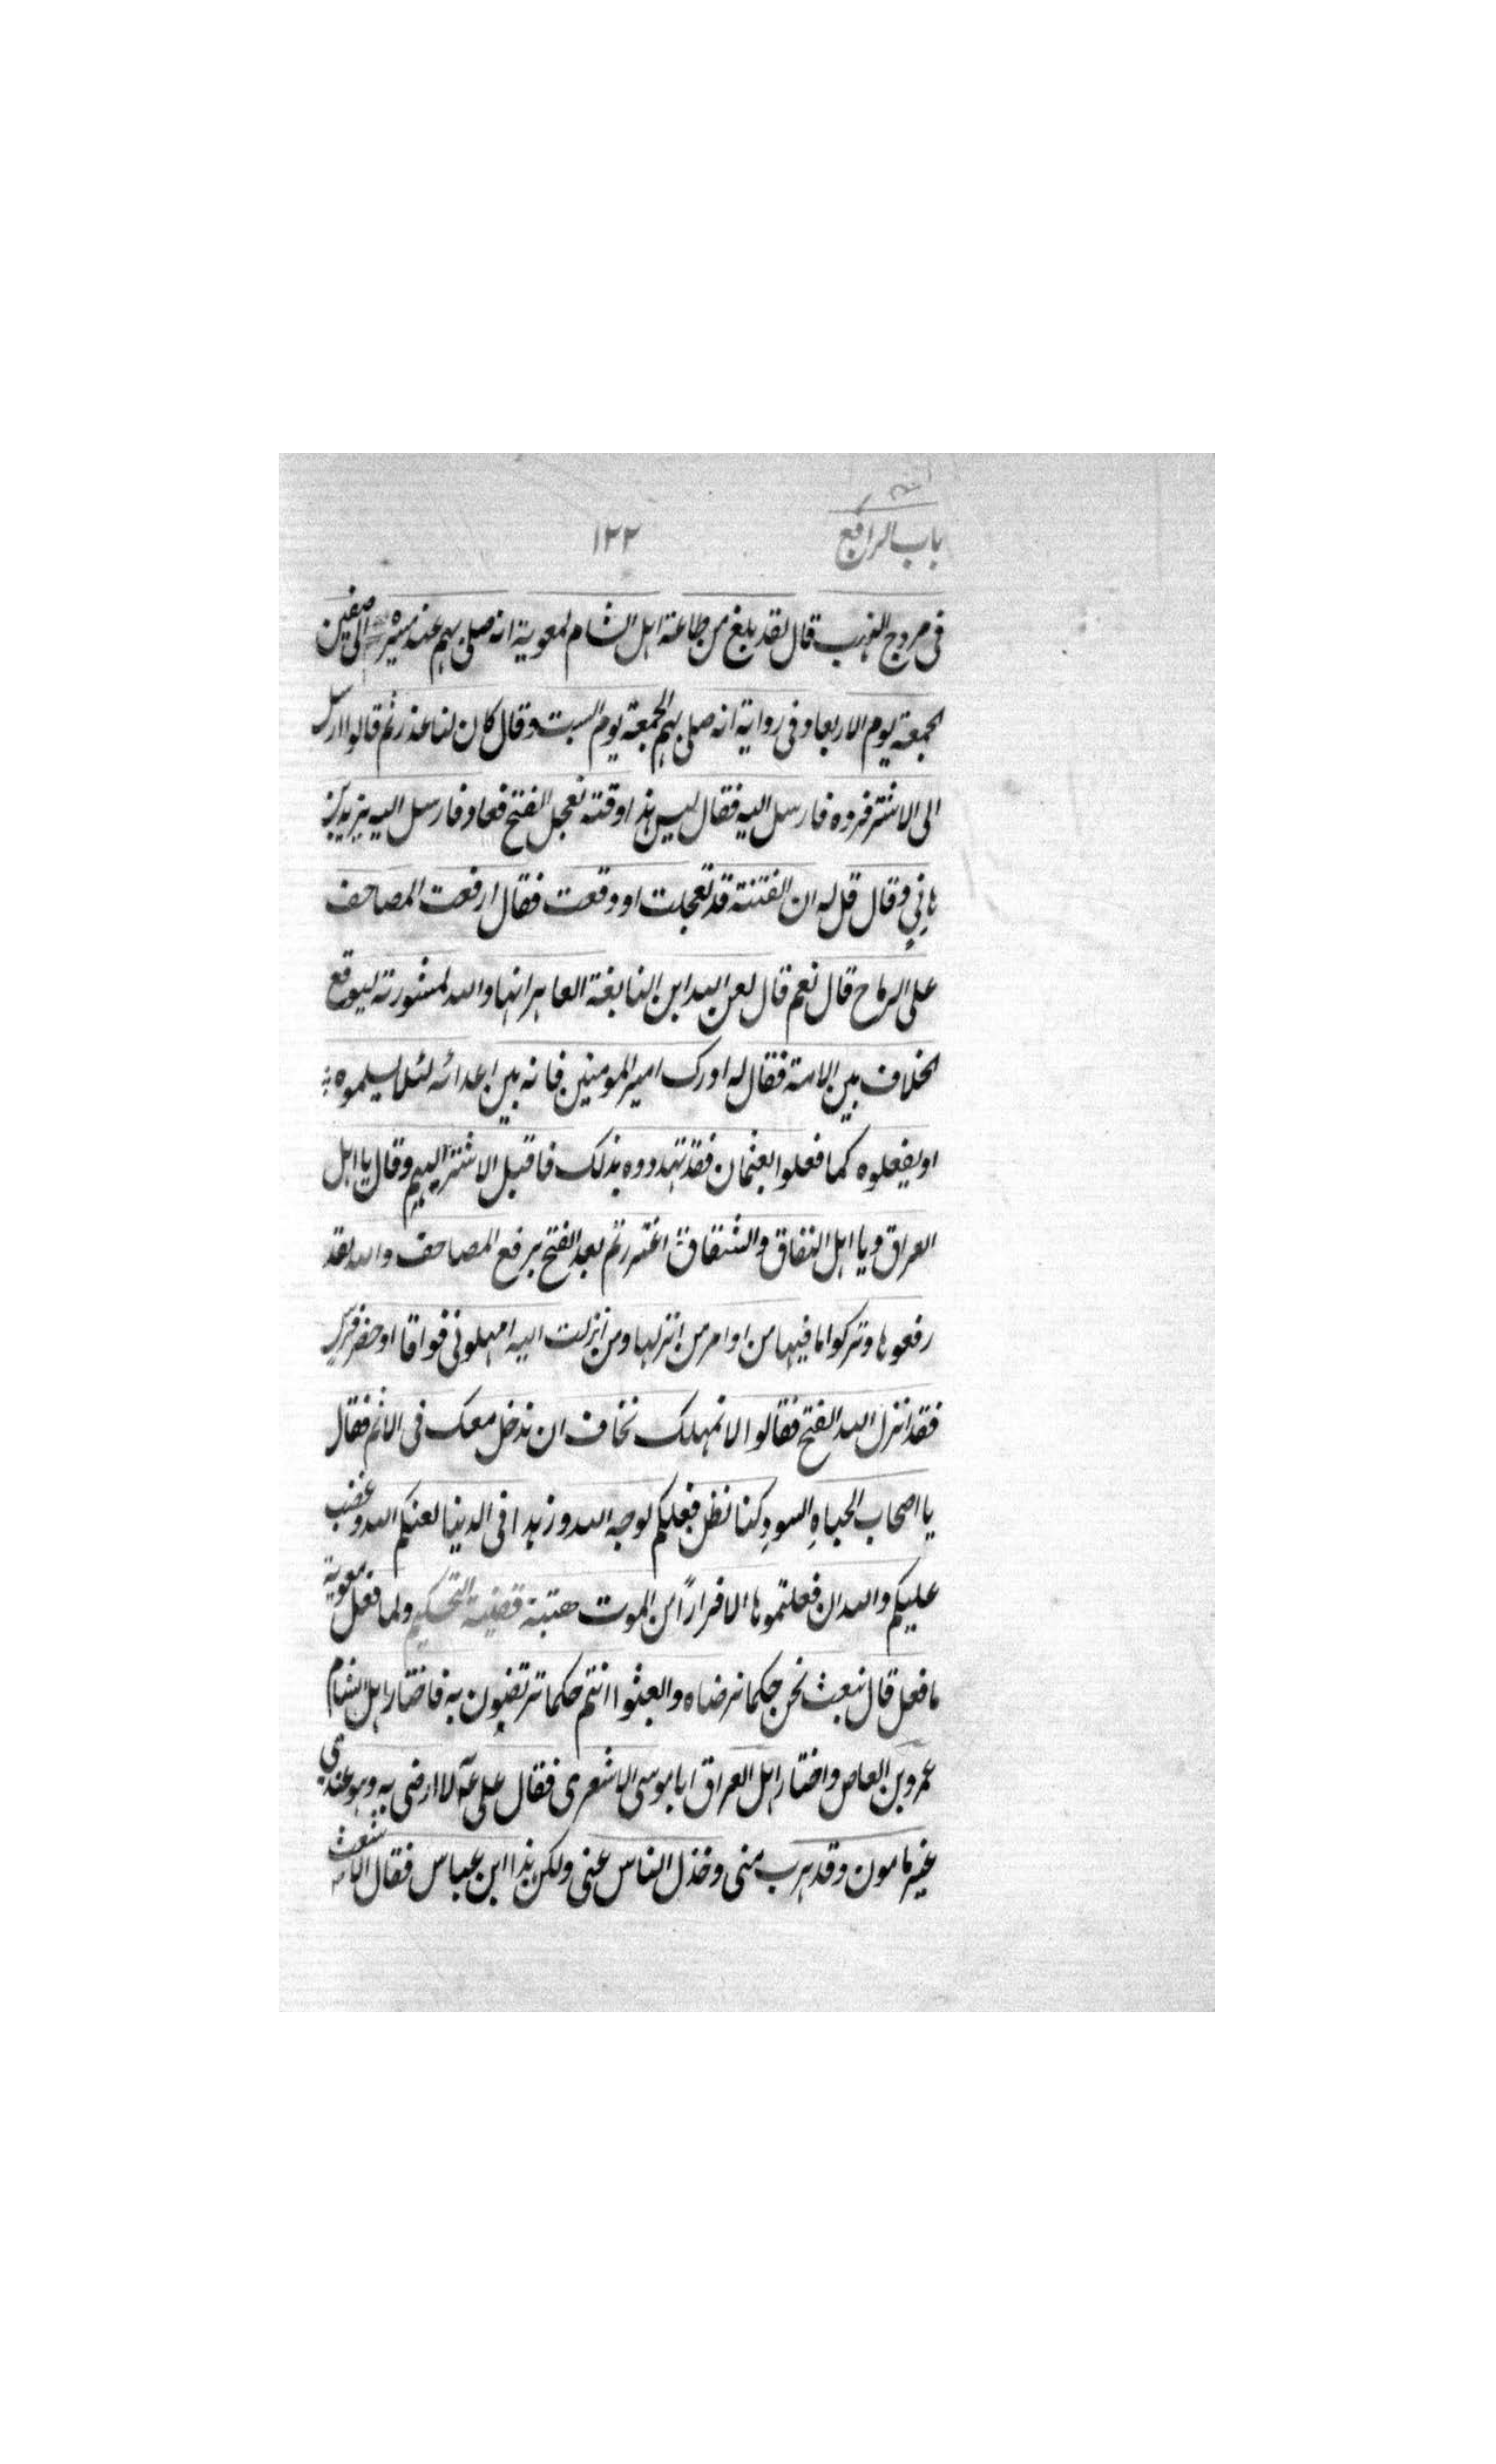 باب الرابع
١٢٢
فى مروج الذهب قال لقد بلغ من طاعة اهل الشام لمعوية انه صلى بهم عند مسيره الى صفين
الجمعة يوم الاربعا وفى رواية انه صلى بهم الجمعة يوم السبت وقال كان لنا عذر ثم قالوا ارسل
الى الاشتر فرده فارسل اليه فقال ليس هذا وقته نعجل الفتح فعاد فارسل اليه يزيد بن
هانىء وقال قل له ان الفتنة قد تعجلت او وقعت فقال ارفعت المصاحف
على الرماح قال نعم قال لعن الله ابن النابغة العاهر انها والله لمشورته ليوقع
الخلاف بين الامة فقال له ادرك امير المومنين فانه بين اعدائه لئلا يسلموه
او يفعلوه كما فعلوا بعثمان فقد تهددوه بذلك فاقبل الاشتر اليهم وقال يا اهل
العراق ويا اهل النفاق والشقاق اغتررتم بعد الفتح برفع المصاحف والله لقد
رفعوها وتركوا ما فيها من اوامر من انزلها ومن انزلت اليه امهلونى فواقا او حضر فرس
فقد انزل الله الفتح فقالوا لا نمهلك نخاف ان ندخل معك فى الاثم فقال
يا اصحاب الجباه السود كنا نظن فعلكم لوجه الله وزهدا فى الدنيا لعنكم الله وغضب
عليكم والله ان فعلتموها الا فرارًا من الموت قضية التحكيم ولما فعل معوية
ما فعل قال نبعث نحن حكما نرضاه وابعثوا انتم حكما ترتضون به فاختار اهل الشام
عمرو بن العاص واختار اهل العراق ابا موسى الاشعرى فقال على لا ارضى به وهو عندى
غير مامون وقد هرب منى وخذل الناس عنى ولكن هذا ابن عباس فقال